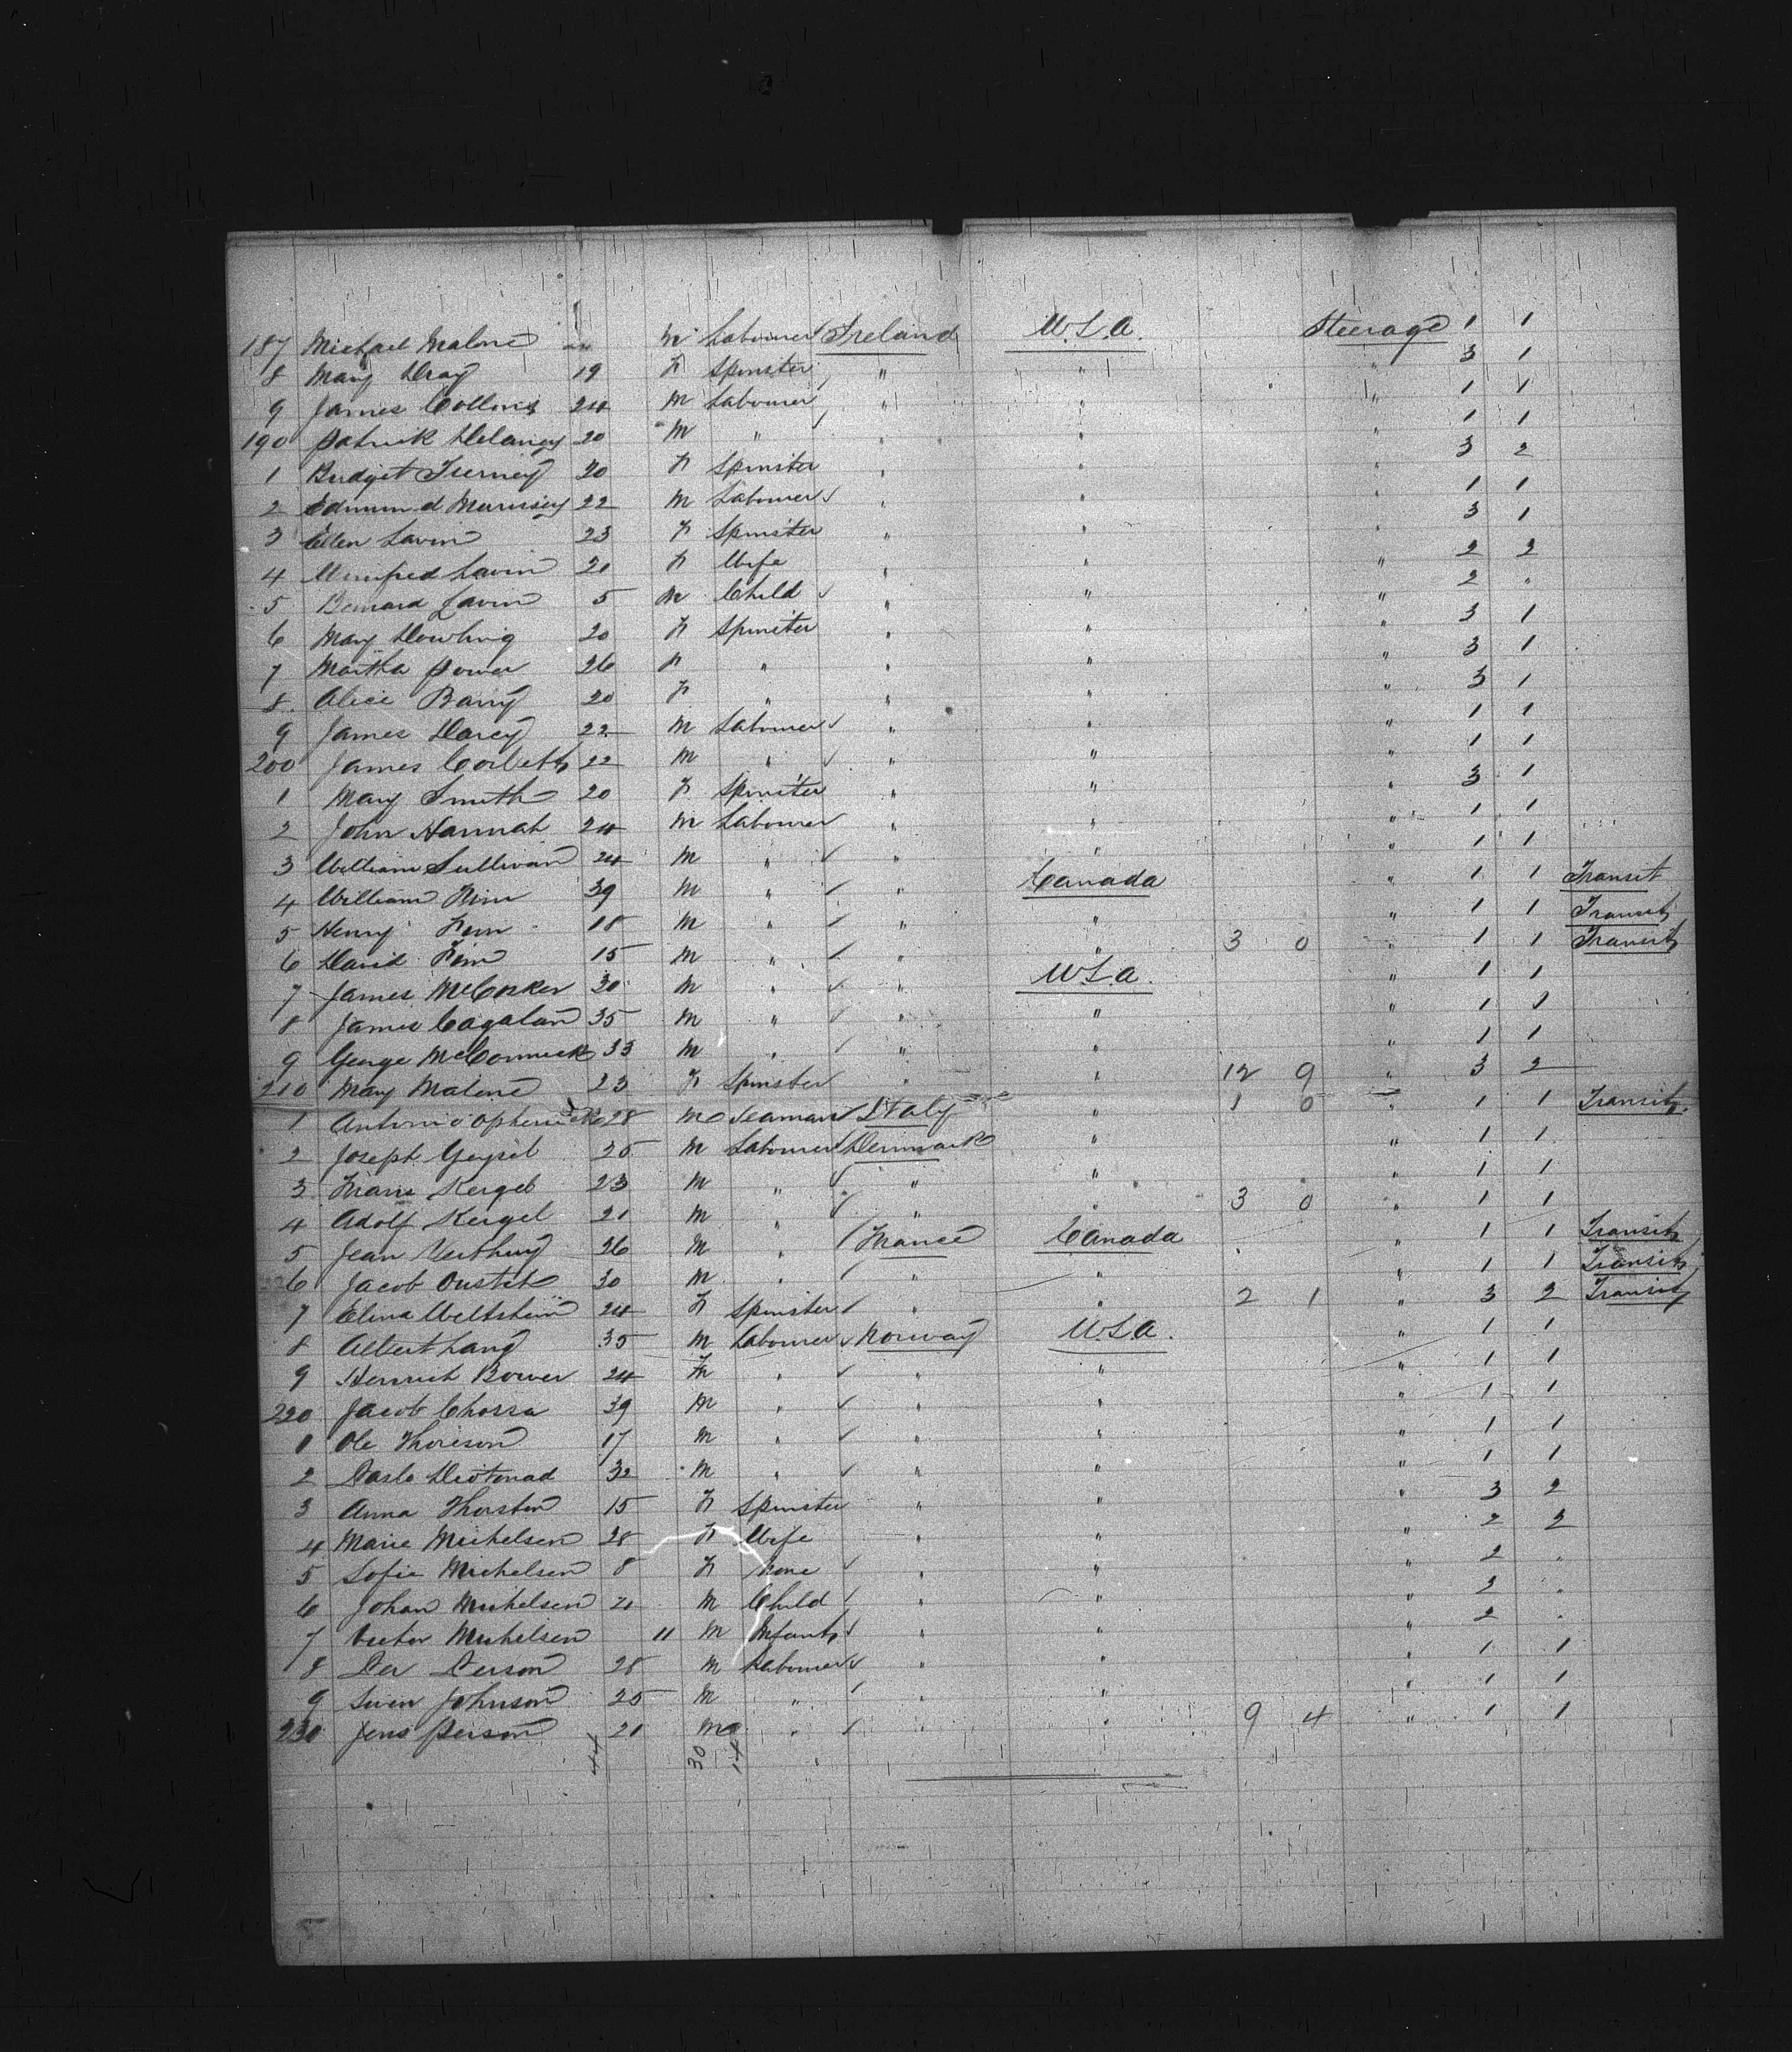 187 Michael Malone M Labourer Ireland U.S.A. Steerage 1 1
8 Mary Dray 19 F Spinster " " " 3 1
9 James Collins 24 M Labourer " " " 1 1
190 Patrick Delaney 20 M " " " " 1 1
1 Bridget Tierney 20 F Spinster " " " 3 2
2 Edmund Morrisey 22 M Labourer " " " 1 1
3 Ellen Lavin 23 F Spinster " " " 3 1
4 Winifred Lavin 20 F Wife " " " 2 2
5 Bernard Lavin 5 M Child " " " 2 "
6 Mary Dowling 20 F Spinster " " " 3 1
7 Martha Power 26 F " " " " 3 1
8 Alice Barry 20 F " " " " 3 1
9 James Darcy 22 M Labourer " " " 1 1
200 James Corbett 22 M " " " " 1 1
1 Mary Smith 20 F Spinster " " " 3 1
2 John Hannah 24 M Labourer " " " 1 1
3 William Sullivan 24 M " " " " 1 1
4 William 39 M " " Canada " 1 1 Transit
5 Henry 18 M " " " " 1 1 Transit
6 David 15 M " " " 3 0 " 1 1 Transit
7 James McCorker 30 M " " U.S.A. " 1 1
8 James Cagalan 35 M " " " " 1 1
9 George McCormick 33 M " " " " 1 1
210 Mary Malone 23 F Spinster " " 12 9 " 3 2
1 Antonio 28 M Seaman Italy " 1 0 " 1 1 Transit
2 Joseph Geysil 25 M Labourer Denmark " " 1 1
3 Frans Kergel 23 M " " " " 1 1
4 Adolf Kergel 21 M " " " 3 0 " 1 1
5 Jean 26 M " France Canada " 1 1 Transit
6 Jacob 30 M " " " " 1 1 Transit
7 Elina Weltsheim 24 F Spinster " " 2 1 " 3 2 Transit
8 Albert Lang 35 M Labourer Norway U.S.A. " 1 1
9 Henrich Bower 24 M " " " " 1 1
220 Jacob Chorra 39 M " " " " 1 1
1 Ole Thoreson 17 M " " " " 1 1
2 32 M " " " " 1 1
3 Anna Thorsten 15 F Spinster " " " 3 2
4 Marie Michelsen 28 F Wife " " " 2 2
5 Sofie Michelsen 8 F None " " " 2 "
6 Johan Michelsen M Child " " " 2 "
7 Victor Michelsen 11 M Infant " " " 2 "
8 28 M Labourer " " " 1 1
9 Swen Johnson 25 M " " " " 1 1
230 Jens Person 20 M " " " 9 4 " 1 1
44 30 14